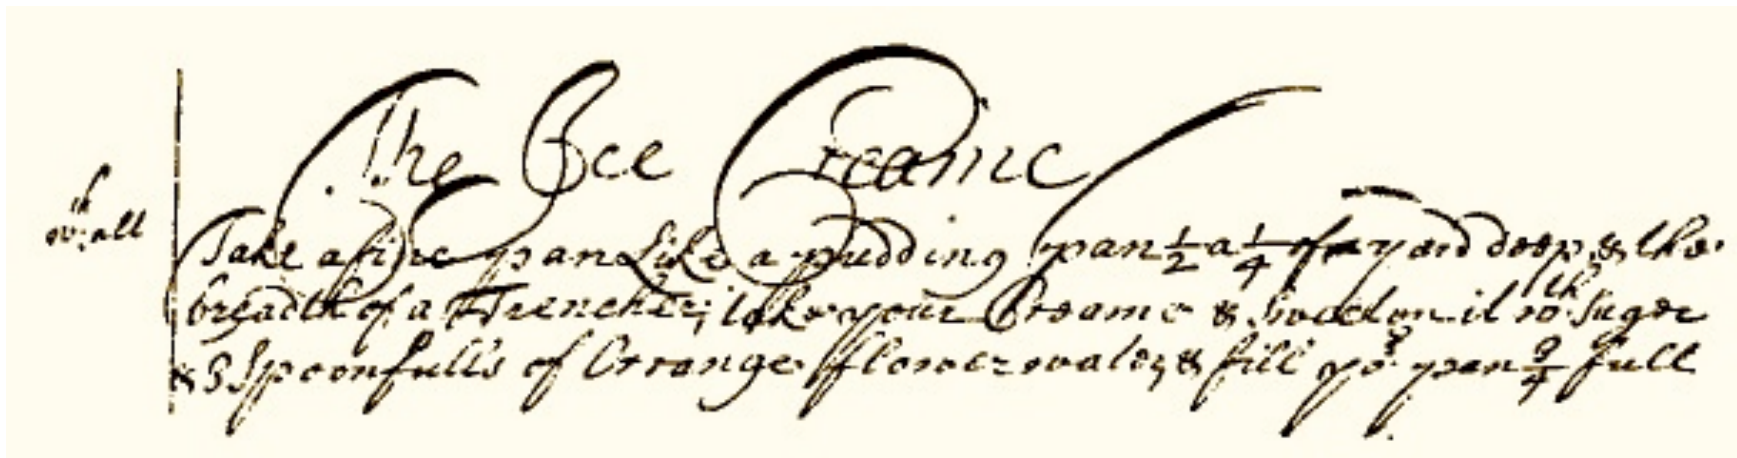 The Ice Creame
wth all
Take a fine pan Like a pudding pan 1/2 a 1/4 of a yard deep, & the
breadth of a Trencher; take your Creame & Sweeten it wth Suger
& 3 Spoonfulls of Orrange flower water, & fill yor pan 3/4 full